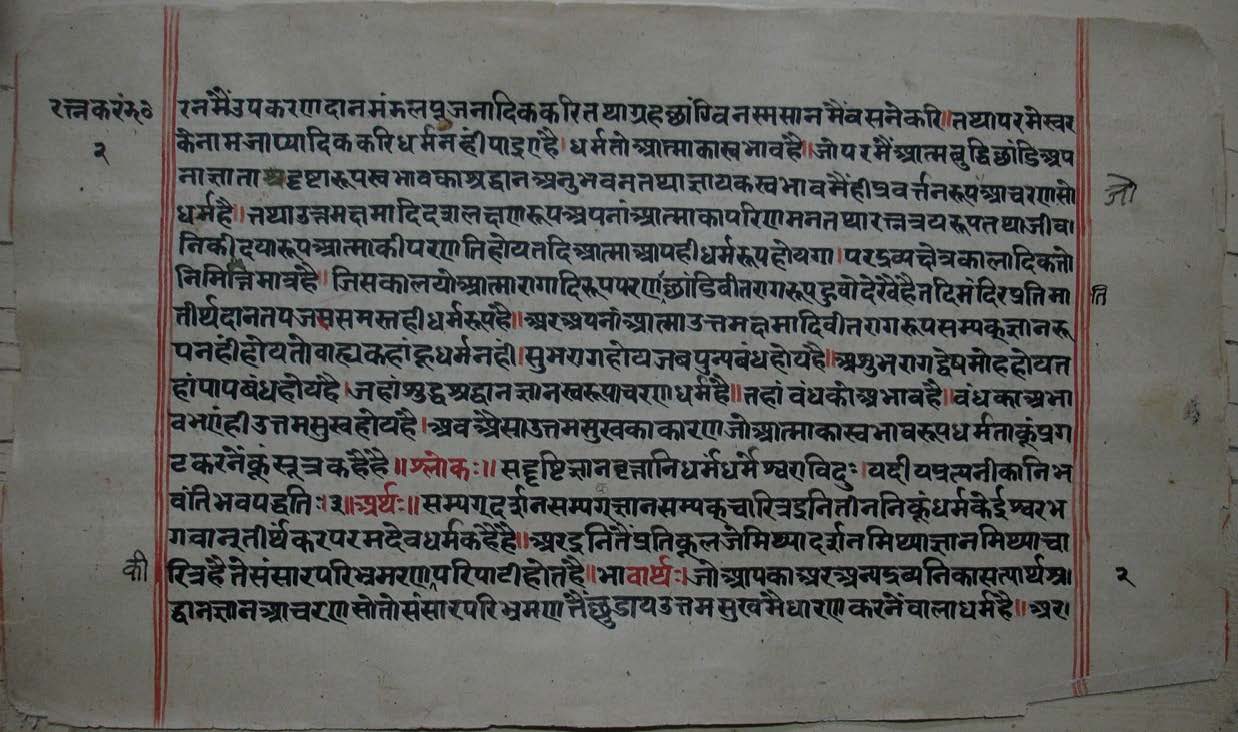 रत्नकरंड०
२
रनमैंउपकरणदानमंडलपूजनादिककरितथाग्रहछांग्विनस्मसानमैंवसनेकरि॥तथापरमेस्वर
केनामजाप्यादिककरिधर्मनहीपाइएहै।धर्मतोआत्माकास्वभावहै॥जोपरमैंआत्मबुद्धिछांडिअप
नाज्ञाताद्दृष्टारूपस्वभावकाश्रद्धानअनुभवनतथाज्ञायकस्वभावमैंहीप्रवर्त्तनरूपआचरणसो
जो
धर्महै॥तथाउत्तमक्षमादिदशलक्षणरूपअपनांआत्माकापरिणमनतथारत्नत्रयरूपतथाजीवा
निकीदयारूपआत्माकीपरणतिहोयतदिआत्माआपहीधर्मरूपहोयगा।परद्रव्यक्षेत्रकालादिकतो
निमित्तमात्रहै॥जिसकालयोआत्मारागादिरूपपरण‸छांडिवीतरागरूपहुवोदेखैहैतदिमंदिरप्रतिमा
ति
तीर्थदानतपजपसमस्तहीधर्मरूपहै॥अरअपनांआत्माउत्तमक्षमादिवीतरागरूपसम्यक्ज्ञानरू
पनहींहोयतोवाह्यकहांहूधर्मनहीं।सुभरागहोयजबपुन्यबंधहोयहै॥अशुभरागद्वेषमोहहोयत
हांपापबंधहोयहै।जहांशुद्धश्रद्धानज्ञानस्वरूपाचरणधर्महै॥तहांवंधकोअभावहै।वंधकाअभा
वभएंहीउत्तमसुखहोयहै।अवअैसाउत्तमसुखकाकारणजोआत्माकास्वभावरूपधर्मताकूंप्रग
टकरनेंकूंसूत्रकहैहै॥श्लोकः॥सद्दृष्टिज्ञानवृत्तानिधर्मंधर्मेश्वराविदुः।यदीयप्रत्यनीकानिभ
वंतिभवपद्धतिः।३॥अर्थः॥सम्यग्दर्शनसम्यग्ज्ञानसम्यक्चारित्रइनितीननिकूंधर्मकेईश्वरभ
गवानतीर्थकरपरमदेवधर्मकहैहै॥अरइनितैंप्रतिकूलजेमिथ्यादर्शनमिथ्याज्ञानमिथ्याचा
की
रित्रहैतेसंसारपरिभ्रमरण‸परिपाटीहोतहै॥भावार्थः।जोआपकाअरअन्यद्रव्यनिकासत्यार्थश्र।
२
द्धानज्ञानआचरणसोतोसंसारपरिभ्रमणतैंछुडायउत्तमसुखमैधारणकरनेंवालाधर्महै॥अर।